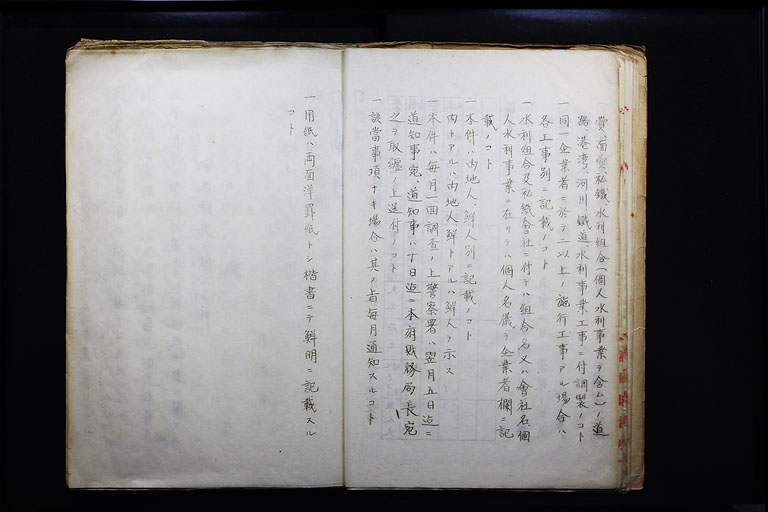 費、面費、私鐵、水利組合(個人水利事業ヲ含ム)ノ道
路港湾、河川、鐵道、水利事業工事ニ付調製ノコト
一同一企業者ニ於テ二以上ノ施行工事アル場合ハ
各工事別ニ記載ノコト
一水利組合及私鐵會社ニ付テハ組合名又ハ會社名、個
人水利事業ニ在リテハ個人名儀ヲ企業者欄ニ記
載ノコト
一本件ハ内地人、鮮人別ニ記載ノコト
内トアルハ内地人鮮トアルハ鮮人ヲ示ス
一本件ハ毎月一回調査ノ上警察署ハ翌月五日迄ニ
道知事宛、道知事ハ十日迄ニ本府財務局長宛
之ヲ取纏ノ上送付ノコト
一該當事項ナキ場合ハ其ノ旨毎月通知スルコト
一用紙ハ両面洋罫紙トシ楷書ニテ鮮明ニ記載スル
コト